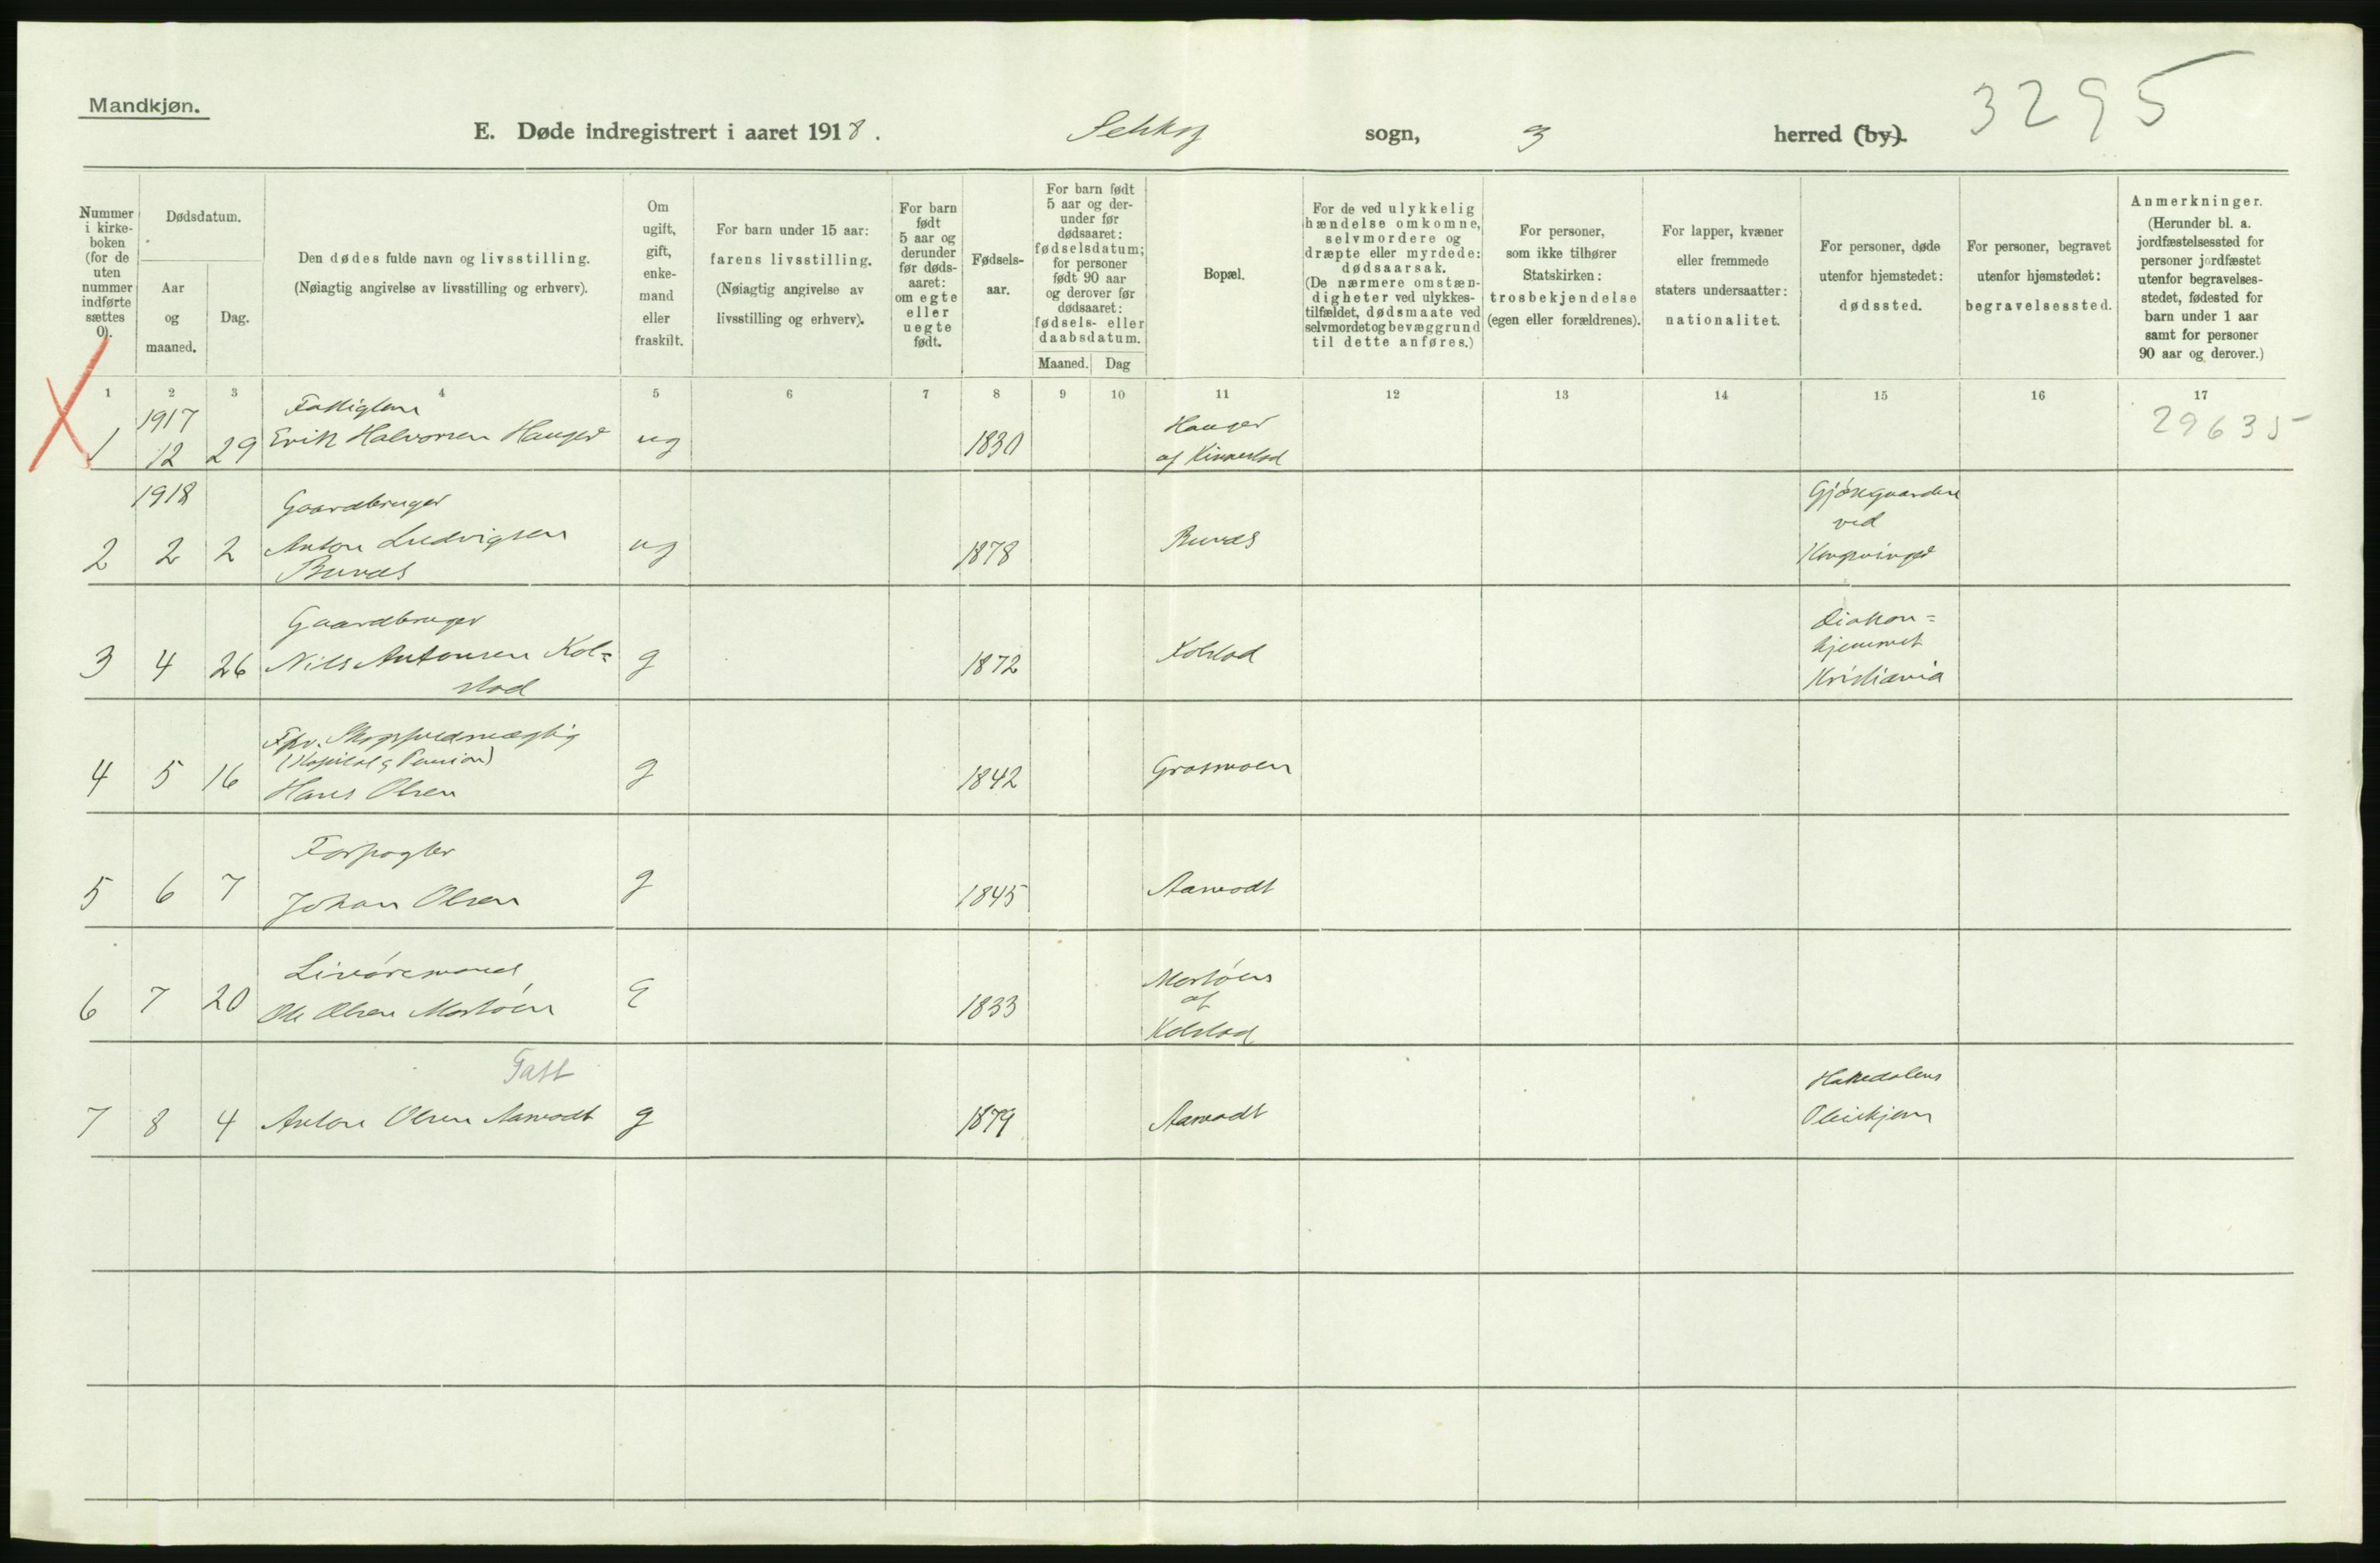 Mandkjøn.
E. Døde indregistrert i aaret 1918.
sogn,
herred (by).
3295
Nummer i kirkeboken (for de uten nummer indførte sættes 0).
Dødsdatum.
Aar og maaned.
Dag.
Den dødes fulde navn og livsstilling.
(Nøiagtig angivelse av livsstilling og erhverv).
Om ugift, gift, enkemand eller fraskilt.
For barn under 15 aar:
farens livsstilling.
(Nøiagtig angivelse av livsstilling og erhverv).
For barn født 5 aar og derunder før dødsaaret: om egte eller uegte født.
Fødselsaar.
For barn født 5 aar og derunder før dødsaaret: fødselsdatum; for personer født 90 aar og derover før dødsaaret: fødsels- eller daabsdatum.
Maaned.
Dag
Bopæl.
For de ved ulykkelig hændelse omkomne, selvmordere og dræpte eller myrdede: dødsaarsak.
(De nærmere omstændigheter ved ulykkestilfældet, dødsmaate ved selvmordet og bevæggrund til dette anføres.)
For personer, som ikke tilhører Statskirken: trosbekjendelse (egen eller forældrenes).
For lapper, kvæner eller fremmede staters undersaatter: nationalitet.
For personer, døde utenfor hjemstedet: dødssted.
For personer, begravet utenfor hjemstedet: begravelsessted.
Anmerkninger.
(Herunder bl. a. jordfæstelsessted for personer jordfæstet utenfor begravelsesstedet, fødested for barn under 1 aar samt for personer 90 aar og derover.)
1 2 3 4 5 6 7 8 9 10 11 12 13 14 15 16 17
1917
Fattiglem
Hauger
29635
1 12 29 Erik Halvorsen Hauger ug 1830
1918
Gaardbruger
ved
2 2 2 Anton Ludvigsen ug 1878 Buraas
Buraas
Kongsvinger
Gaardbruger
Diakon=
hjemmet
3 4 26 Nils Antonsen Kol= g 1872 Kolstad
stad
Kristiania
4 5 16 Hans Olsen g 1842 Grasmoen
Forpagter
5 6 7 Johan Olsen g 1845 Aamodt
6 7 20 Ole Olsen E 1833
af
Kolstad
Fatt
Hakedalens
7 8 4 Anton Olsen Aamodt g 1879 Aamodt